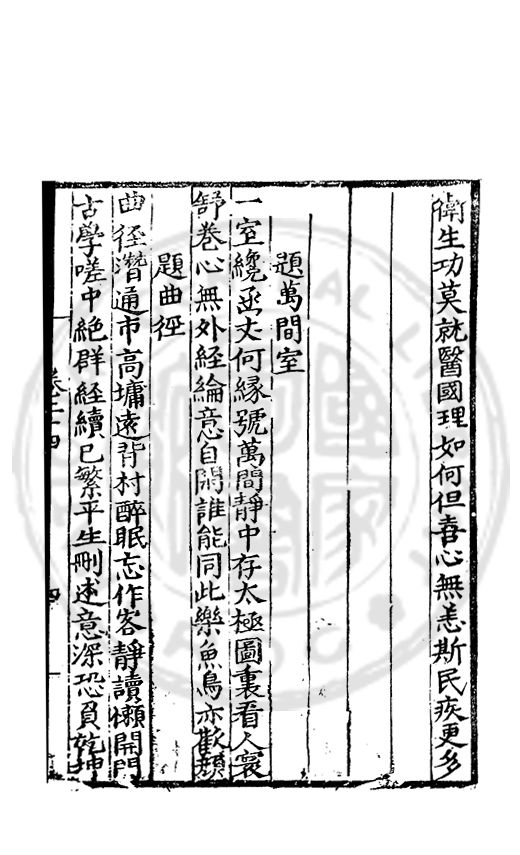 衛生功莫就醫國理如何但喜心無恙斯民疾更多
題萬間室
一室纔盈丈何緣號萬間靜中存太極圖裏看人寰
舒卷心無外經綸意自閑誰能同此樂魚鳥亦歡顏
題曲徑
曲徑潛通市高墉遠背村醉眠忘作客靜讀懶開門
古學嗟中絶群經續已繁平生刪述意深恐負乾坤
卷二十四
四